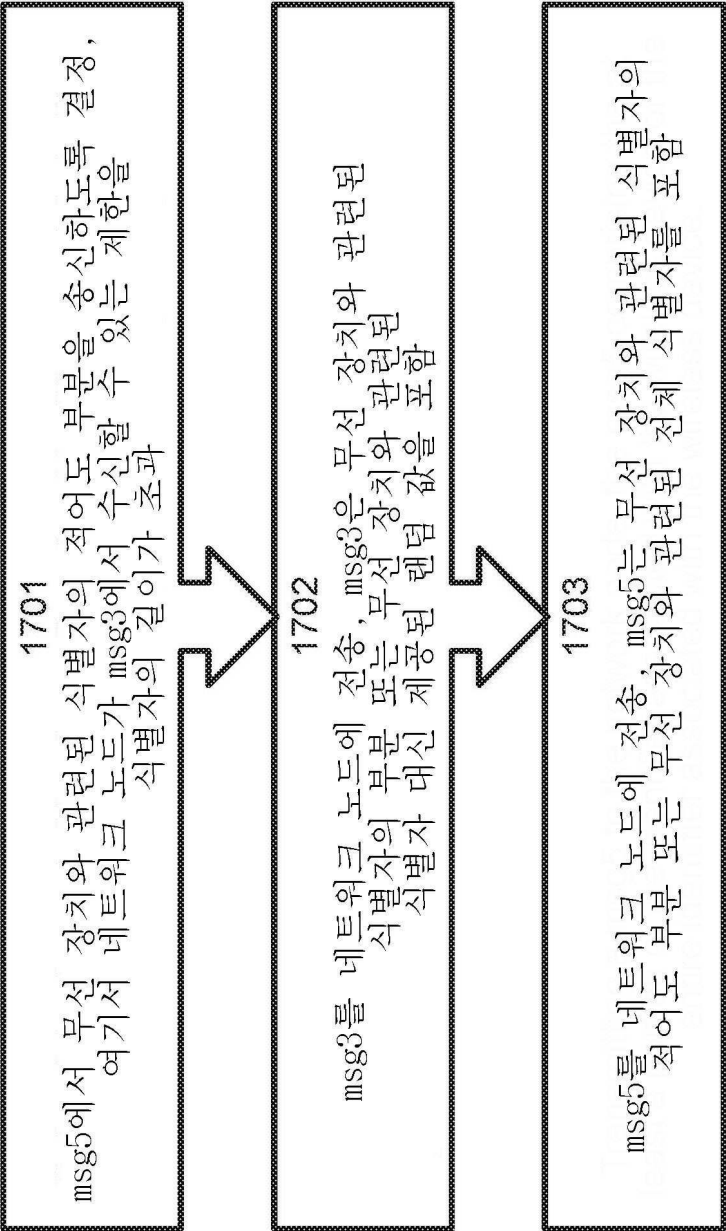 1701
msg5에서 무선 장치와 관련된 식별자의 적어도 부분을 송신하도록 결정,
여기서 네트워크 노드가 msg3에서 수신할 수 있는 제한을
식별자의 길이가 초과
1702
msg3를 네트워크 노드에 전송, msg3은 무선 장치와 관련된
식별자의 부분 또는 무선 장치와 관련된
식별자 대신 제공된 랜덤 값을 포함
1703
msg5를 네트워크 노드에 전송, msg5는 무선 장치와 관련된 식별자의
적어도 부분 또는 무선 장치와 관련된 전체 식별자를 포함